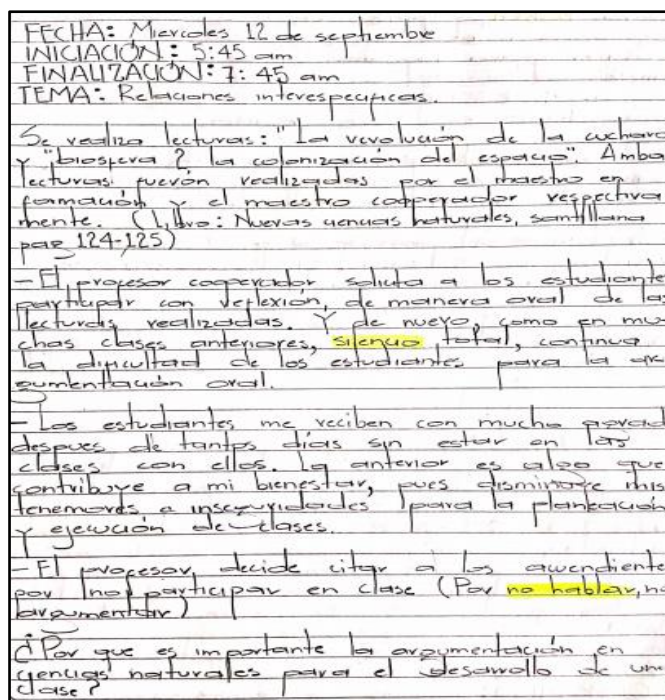 FECHA: Miercoles 12 de septiembre
INICIACIÓN: 5:45 am
FINALIZACIÓN: 7:45 am
TEMA: Relaciones interespecificas.
Se realiza lecturas: "La revolución de la cuchara
y "biosfera 2 la colonización del espacio". Amba
lecturas fuerón realizadas por el maestro en
formación y el maestro cooperador respectiva
mente. (Libro: Nuevas ciencias naturales, santillana
pag 124-125)
- El profesor cooperador solicita a los estudiante
participar con reflexión, de manera oral de las
lecturas realizadas. Y de nuevo, como en mu
chas clases anteriores, silencio total, continua
la dificultad de los estudiantes para la ar
gumentación oral.
- Los estudiantes me reciben con mucho agrad
despues de tantos días sin estar en las
clases con ellos. Lo anterior es algo que
contribuye a mi bienestar, pues disminuye mis
temores e inseguridades para la planeación
y ejecución de clases.
- El profesor, decide citar a los acudiente
por no participar en clase (Por no hablar, no
argumentar)
¿Por que es importante la argumentación en
ciencias naturales para el desarrollo de una
clase?